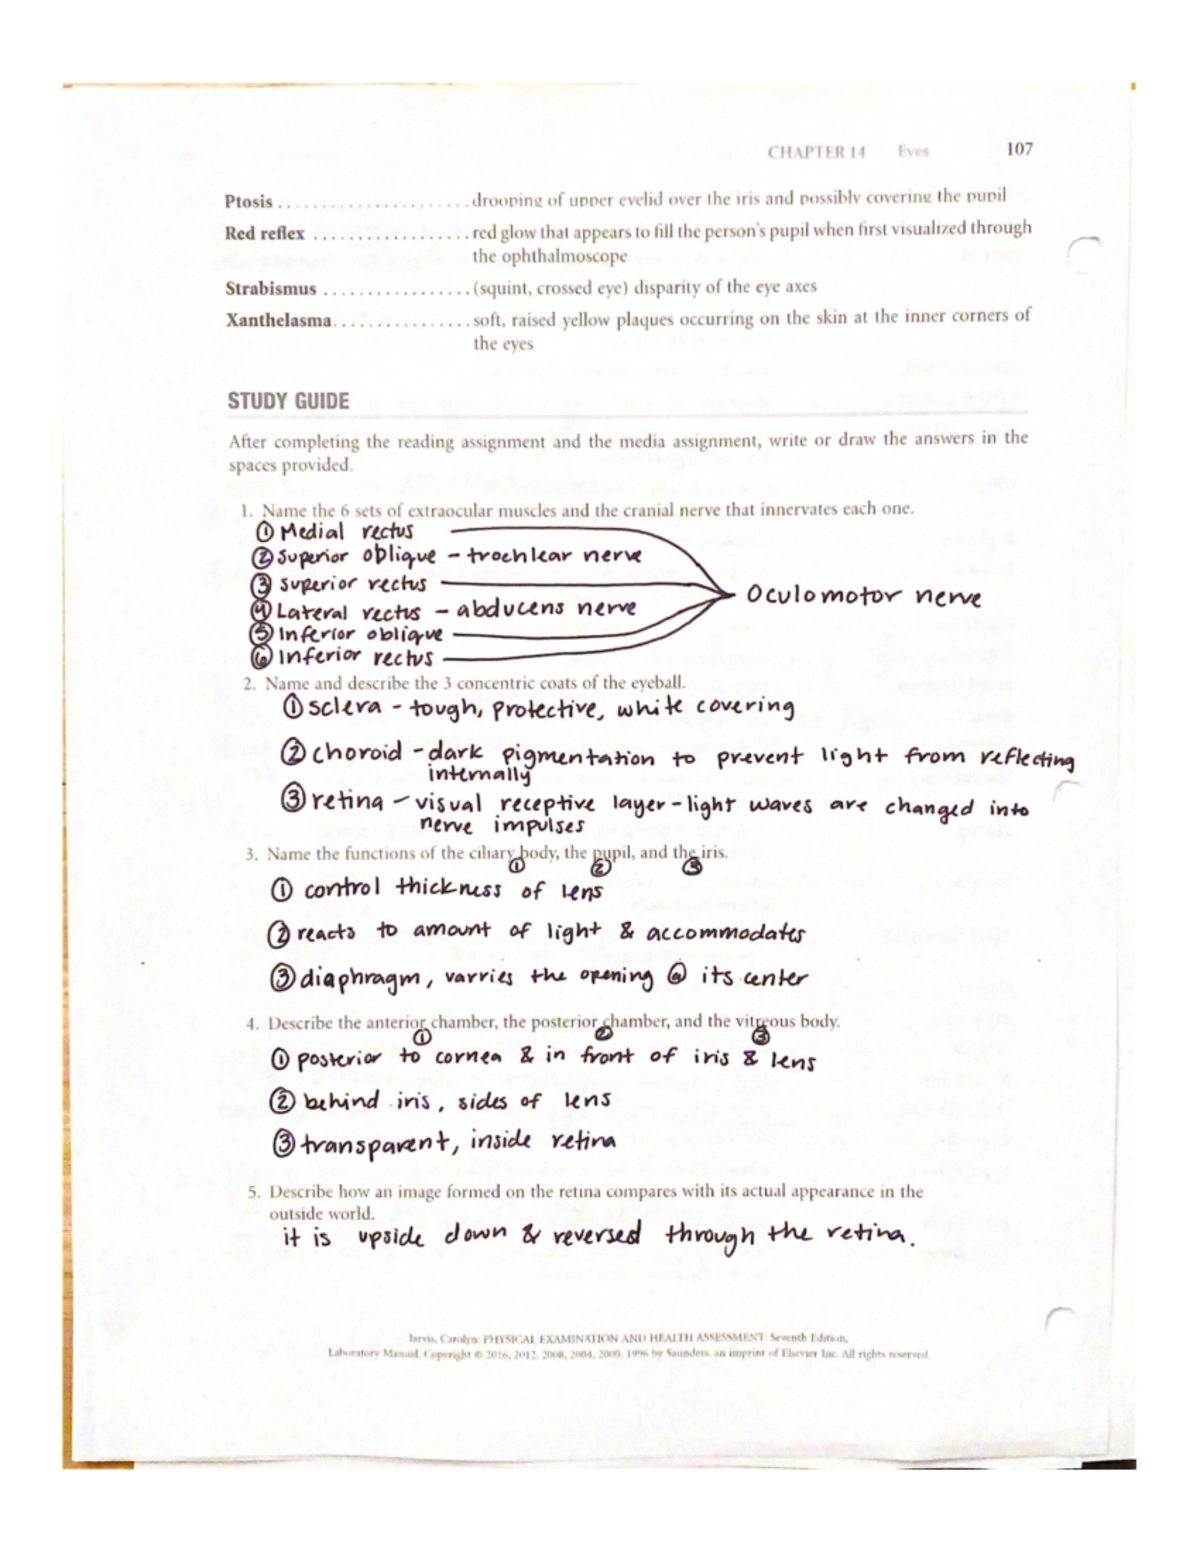 CHAPTER 14 Eyes 107
Ptosis . . . . . . . . . . . . . . . . . . . . . . drooping of upper eyelid over the iris and possibly covering the pupil
Red reflex . . . . . . . . . . . . . . . . . . red glow that appears to fill the person's pupil when first visualized through
the ophthalmoscope
Strabismus . . . . . . . . . . . . . . . . . (squint, crossed eye) disparity of the eye axes
Xanthelasma. . . . . . . . . . . . . . . . soft, raised yellow plaques occurring on the skin at the inner corners of
the eyes
STUDY GUIDE
After completing the reading assignment and the media assignment, write or draw the answers in the
spaces provided.
1. Name the 6 sets of extraocular muscles and the cranial nerve that innervates each one.
① Medial rectus
② superior oblique - trochlear nerve
③ superior rectus
Oculomotor nerve
④ Lateral rectus - abducens nerve
⑤ Inferior oblique
⑥ Inferior rectus
2. Name and describe the 3 concentric coats of the eyeball.
① sclera - tough, protective, white covering
② choroid - dark pigmentation to prevent light from reflecting
internally
③ retina - visual receptive layer - light waves are changed into
nerve impulses
3. Name the functions of the ciliary body, the pupil, and the iris.
① ② ③
① control thickness of lens
② reacts to amount of light & accommodates
③ diaphragm, varries the opening @ its center
4. Describe the anterior chamber, the posterior chamber, and the vitreous body.
① ② ③
① posterior to cornea & in front of iris & lens
② behind iris, sides of lens
③ transparent, inside retina
5. Describe how an image formed on the retina compares with its actual appearance in the
outside world.
it is upside down & reversed through the retina.
Jarvis, Carolyn: PHYSICAL EXAMINATION AND HEALTH ASSESSMENT: Seventh Edition,
Laboratory Manual. Copyright © 2016, 2012, 2008, 2004, 2000, 1996 by Saunders, an imprint of Elsevier Inc. All rights reserved.